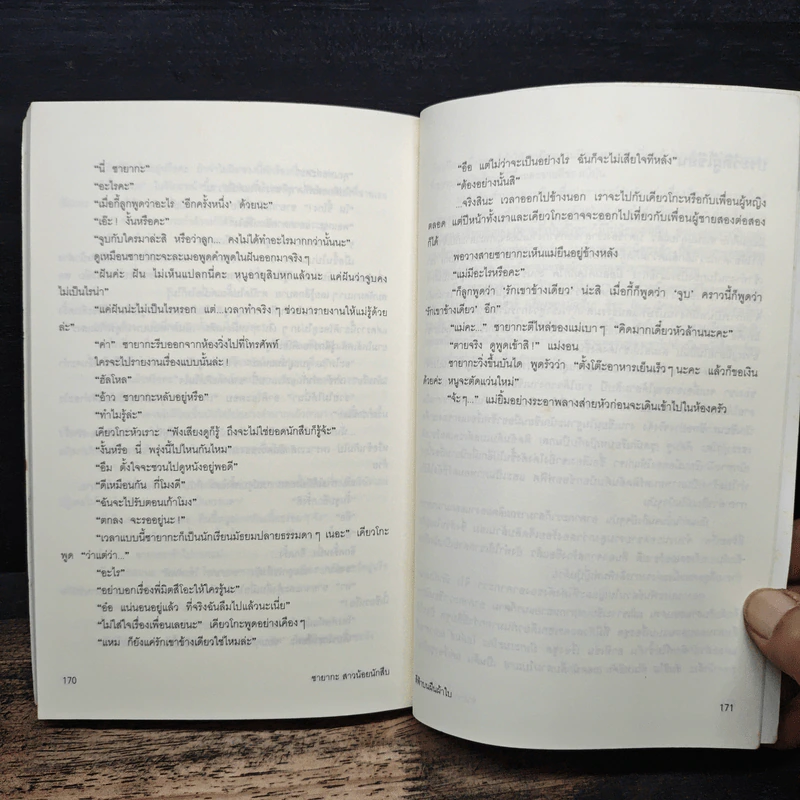 “นี่ ซายากะ”
“อะไรคะ”
“เมื่อกี้ลูกพูดว่าอะไร ‘อีกครั้งหนึ่ง’ ด้วยนะ”
“เอ๊ะ! งั้นหรือคะ”
“จูบกับใครมาล่ะสิ หรือว่าลูก... คงไม่ได้ทำอะไรมากกว่านั้นนะ”
ดูเหมือนซายากะจะละเมอพูดคำพูดในฝันออกมาจริงๆ
“ฝันค่ะ ฝัน ไม่เห็นแปลกนี่คะ หนูอายุสิบหกแล้วนะ แค่ฝันว่าจูบคง
ไม่เป็นไรน่า”
“แค่ฝันน่ะไม่เป็นไรหรอก แต่...เวลาทำจริงๆ ช่วยมารายงานให้แม่รู้ด้วย
ล่ะ”
“ค่า” ซายากะรีบออกจากห้องวิ่งไปที่โทรศัพท์
ใครจะไปรายงานเรื่องแบบนั้นล่ะ!
“ฮัลโหล”
“อ้าว ซายากะหลับอยู่หรือ”
“ทำไมรู้ล่ะ”
เคียวโกะหัวเราะ “ฟังเสียงดูก็รู้ ถึงจะไม่ใช่ยอดนักสืบก็รู้จ้ะ”
“งั้นหรือ นี่ พรุ่งนี้ไปไหนกันไหม”
“อืม ตั้งใจจะชวนไปดูหนังอยู่พอดี”
“ดีเหมือนกัน กี่โมงดี”
“ฉันจะไปรับตอนเก้าโมง”
“ตกลง จะรออยู่นะ!”
“เวลาแบบนี้ซายากะก็เป็นนักเรียนมัธยมปลายธรรมดาๆ เนอะ” เคียวโกะ
พูด “ว่าแต่ว่า...”
“อะไร”
“อย่าบอกเรื่องพี่มิตสึโอะให้ใครรู้นะ”
“อ๋อ แน่นอนอยู่แล้ว ที่จริงฉันลืมไปแล้วนะเนี่ย”
“ไม่ใส่ใจเรื่องเพื่อนเลยนะ” เคียวโกะพูดอย่างเคืองๆ
“แหม ก็ยังแค่รักเขาข้างเดียวใช่ไหมล่ะ”
170
ซายากะ สาวน้อยนักสืบ
“อือ แต่ไม่ว่าจะเป็นอย่างไร ฉันก็จะไม่เสียใจทีหลัง”
“ต้องอย่างนั้นสิ”
...จริงสินะ เวลาออกไปข้างนอก เราจะไปกับเคียวโกะหรือกับเพื่อนผู้หญิง
ตลอด แต่ปีหน้าทั้งเราและเคียวโกะอาจจะออกไปเที่ยวกับเพื่อนผู้ชายสองต่อสอง
ก็ได้
พอวางสายซายากะเห็นแม่ยืนอยู่ข้างหลัง
“แม่มีอะไรหรือคะ”
“ก็ลูกพูดว่า ‘รักเขาข้างเดียว’ น่ะสิ เมื่อกี้ก็พูดว่า ‘จูบ’ คราวนี้ก็พูดว่า
‘รักเขาข้างเดียว’ อีก”
“แม่คะ...” ซายากะตีไหล่ของแม่เบาๆ “คิดมากเดี๋ยวหัวล้านนะคะ”
“ตายจริง ดูพูดเข้าสิ!” แม่งอน
ซายากะวิ่งขึ้นบันได พูดรัวว่า “ตั้งโต๊ะอาหารเย็นเร็วๆ นะคะ แล้วก็ขอเงิน
ด้วยค่ะ หนูจะตัดแว่นใหม่”
“จ้ะๆ...” แม่ยิ้มอย่างระอาพลางส่ายหัวก่อนจะเดินเข้าไปในห้องครัว
171